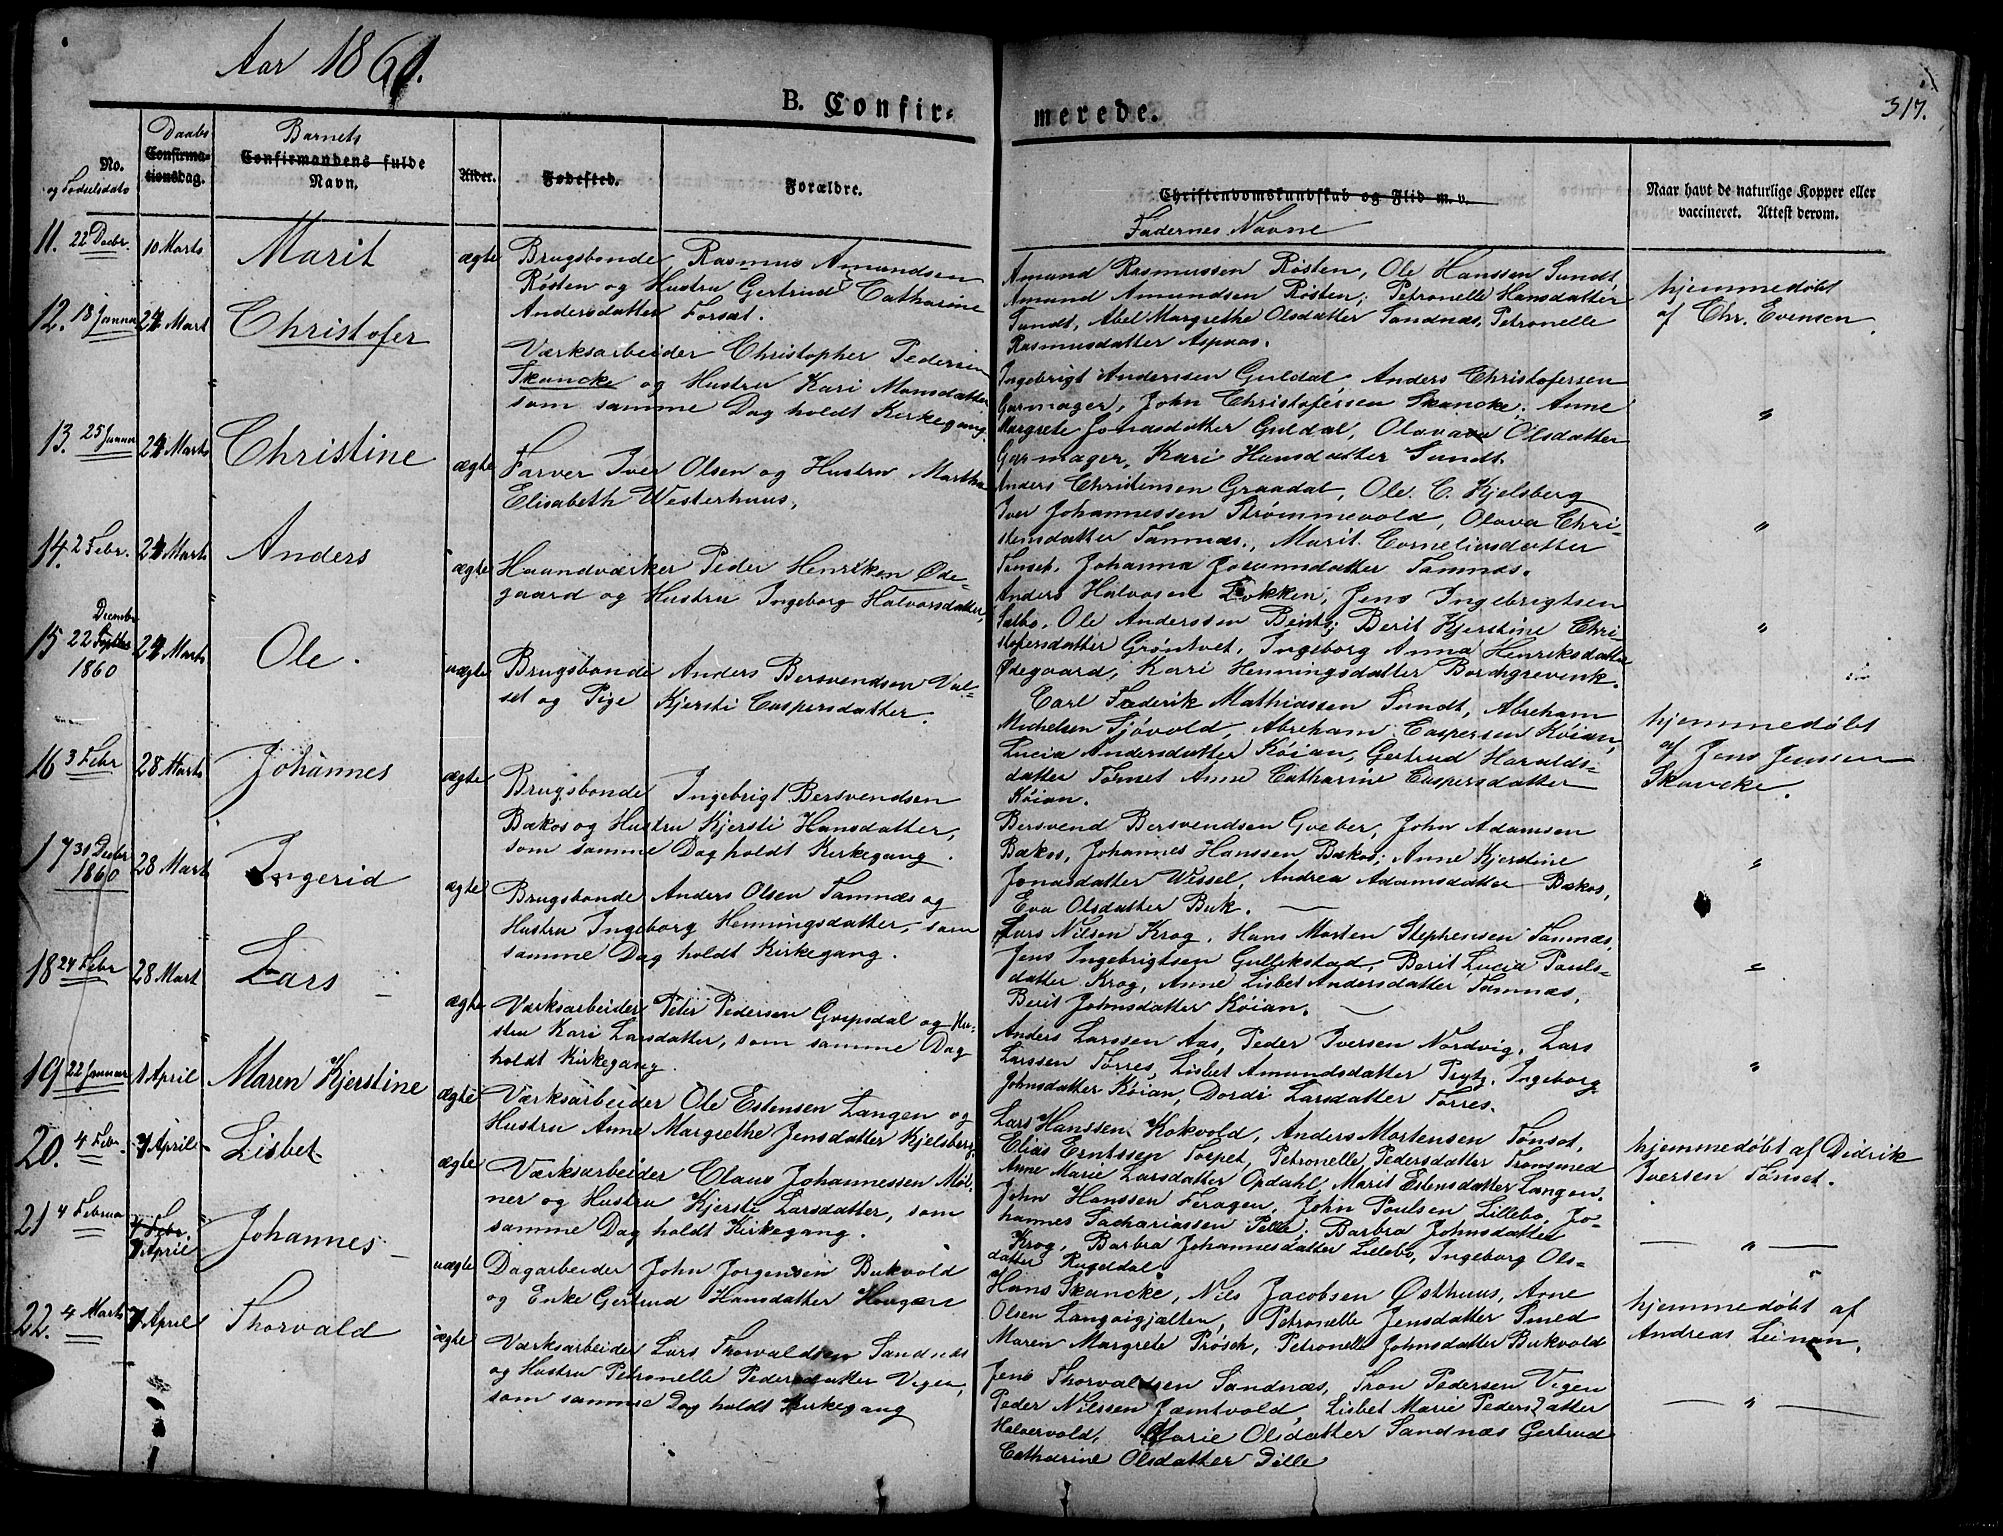 Aar 1861.
B. Confirmerede.
317.
No. og Fødselsdato
Daabs
Confirmationsdag.
Barnets
Confirmandens fulde
Navn.
Alder.
Fødested.
Forældre.
Christendomskundskab og Flid m. v.
Fadernes Navne
Naar havt de naturlige Kopper eller
vaccineret. Attest derom.
11. 22 Decbr. 10 Marts Marit ægte
Brugsbonde Rasmus Amundsen
Røsten og Hustru Gertrud Catharine
Andersdatter Forsæt.
Amund Rasmussen Røsten, Ole Hanssen Sundt,
Amund Amundsen Røsten; Petronelle Hansdatter
Sundt, Abel Margrethe Olsdatter Sandnæs, Petronelle
Rasmusdatter Aspaas.
hjemmedøbt
af Chr. Evensen.
12. 18 Januar 24 Mart Christofer
Værksarbeider Christopher Pedersen
Skancke og Hustru Kari Monsdatter
som samme Dag holdt Kirkegang.
Ingebrigt Anderssen Guldal, Anders Christofersen
Garmager, John Christofersen Skancke; Anne
Margrete Jonasdatter Guldal, Olava Olsdatter
Garmager, Kari Hansdatter Sundt.
"
13. 25 Januar 24 Marts Christine ægte
Farver Iver Olsen og Hustru Martha
Elisabeth Westerhuus,
Anders Christensen Graadal, Ole C. Kjelsberg
Iver Johannessen Strømmevold, Olava Chri-
stensdatter Tamnæs, Marit Corneliusdatter
Tønset, Johanna Johannsdatter Tamnæs.
"
14. 2 Febr. 24 Marts Anders ægte
Haandværker Peder Henriksen Øde-
gaard og Hustru Ingeborg Halvorsdatter,
Anders Halvosen Løkken, Jens Ingebrigtsen
Salbo, Ole Anderssen Bentz; Berit Kjerstine Chri-
stofersdatter Grøntvet, Ingeborg Anna Henriksdatter
Ødegaard, Karri Henningsdatter Borchgrevink.
"
15 22 Decembr 1860 24 Marts Ole. uægte
Brugsbonde Anders Bersvendsen Val-
set og Pige Kjersti Caspersdatter.
Carl Frederik Mathiassen Sundt, Abraham
Michelsen Sjøvold, Abraham Caspersen Køian,
Lucia Andersdatter Køian, Gertrud Haralds-
datter Tørnes Anne Catharine Caspersdatter
Køian.
hjemmedøbt
af Jens Jenssen
Skancke.
16 3 Febr 28 Marts Johannes ægte
Brugsbonde Ingebrigt Bersvendsen
Bækos og Hustru Kjersti Hansdatter,
som samme Dag holdt Kirkegang.
Bersvend Bersvendsen Gveber, John Adamsen
Bækos, Johannes Hanssen Bækos; Anne Kjerstine
Jonasdatter Wessel, Andrea Adamsdatter Bækos,
Eva Olsdatter Buk.
"
17 31 Decbr 1860 28 Mart Ingerid ægte
Brugsbonde Anders Olsen Tamnæs og
Hustru Ingeborg Henningsdatter, som
samme Dag holdt Kirkegang.
Lars Nilsen Krog, Hans Morten Stephensen Tamnæs,
Jens Ingebrigtsen Gullikstad, Berit Lucia Pauls-
datter Krog, Anne Lisbet Andersdatter Tamnæs,
Berit Johnsdatter Køian.
"
18 24 Febr 28 Mart Lars ægte
Værksarbeider Peter Pedersen Gripsdal og Hu-
stru Kari Larsdatter, som samme Dag
holdt Kirkegang.
Anders Larssen Aas, Peder Iversen Nordvig, Lars
Larssen Tørres, Lisbet Amundsdatter Prytz, Ingeborg
Johnsdatter Køian, Dordi Larsdatter Tørres.
"
19 22 Januar 1 April Maren Kjerstine ægte
Værksarbeider Ole Estensen Langen og
Hustru Anne Margrethe Jensdatter Kjelsberg
Lars Hanssen Kokvold, Anders Mortensen Tønset,
Elias Erntssen Torpet, Petronelle Pedersdatter Tronsmed
Anne Marie Larsdatter Opdahl, Marit Estensdatter Langen.
hjemmedøbt af Didrik
Iversen Tønset.
20. 4 Febr 7 April Lisbet ægte
Værksarbeider Claus Johannessen Møl-
ner og Hustru Kjersti Larsdatter, som
samme Dag holdt Kirkegang.
John Hanssen Feragen, John Poulsen Lillebo, Jo-
hannes Sachariassen Pelle; Barbra Johnsdatter
Krog, Barbra Johannesdatter Lillebo, Ingeborg Ols-
datter Rugeldal.
"
21 4 Februar 4 Febr. 7 April Johannes uægte
Dagarbeider John Jørgensen Bukvold
og Enke Gertrud Hansdatter Haugen
Hans Skancke, Nils Jacobsen Østhuus, Arne
Olsen Langvigjælten, Petronelle Jensdatter Smed
Maren Margrete Prösch, Petronelle Johnsdatter Bukvold
hjemmedøbt af
Andreas Leinan.
22. 4 Marts 7 April Thorvald ægte
Værksarbeider Lars Thorvaldsen Sandnæs
og Hustru Petronelle Pedersdatter Vigen,
som samme Dag holdt Kirkegang
Jens Thorvaldsen Sandnæs, Tron Pedersen Vigen
Peder Nilssen Jæmtvold, Lisbet Marie Pedersdatter
Halvervold, Marie Olsdatter Sandnæs Gertrud
Catharine Olsdatter Pille
"